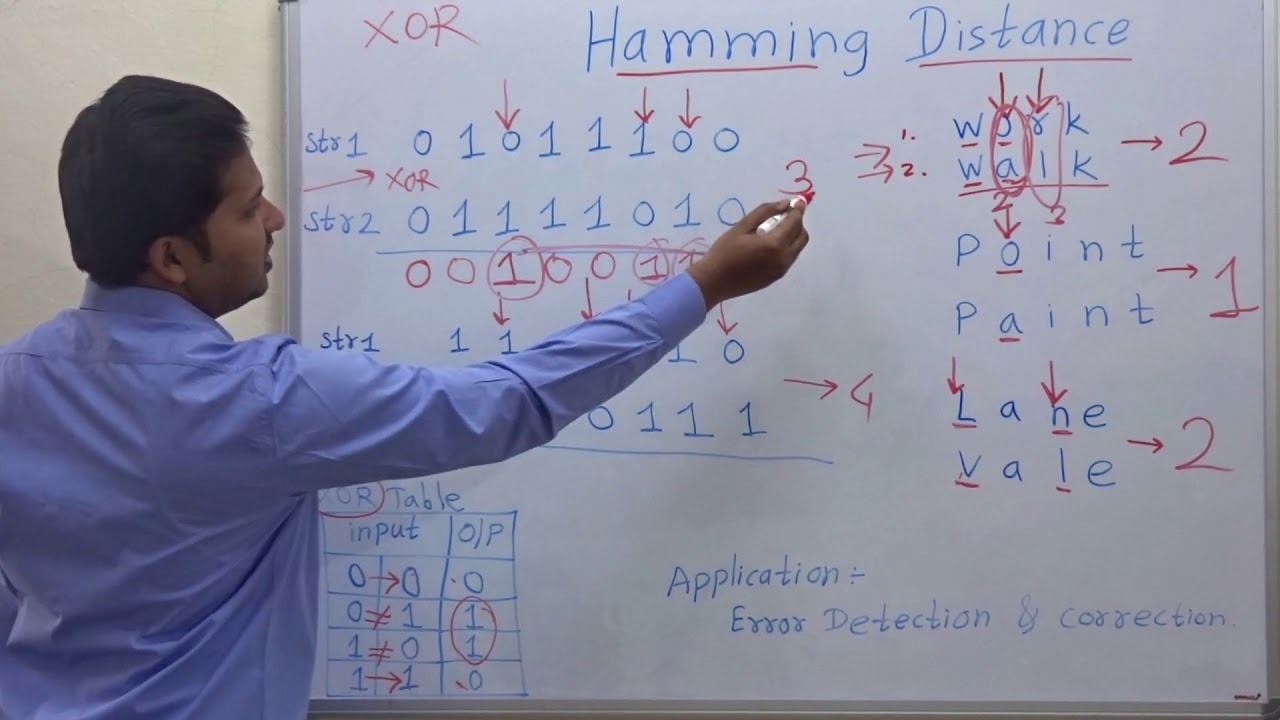 XOR
Hamming Distance
str1 0 1 0 1 1 1 0 0
XOR
str2 0 1 1 1 1 0 1 0
0 0 1 0 0 1 1
3
str1 1 1 1 0
0 1 1 1
→ 4
1. work
2. walk
→ 2
2 3
Point
Paint
→ 1
Lane
Vale
→ 2
XOR Table
input O/P
0 → 0 0
0 ≠ 1 1
1 ≠ 0 1
1 → 1 0
Application :-
Error Detection & correction.